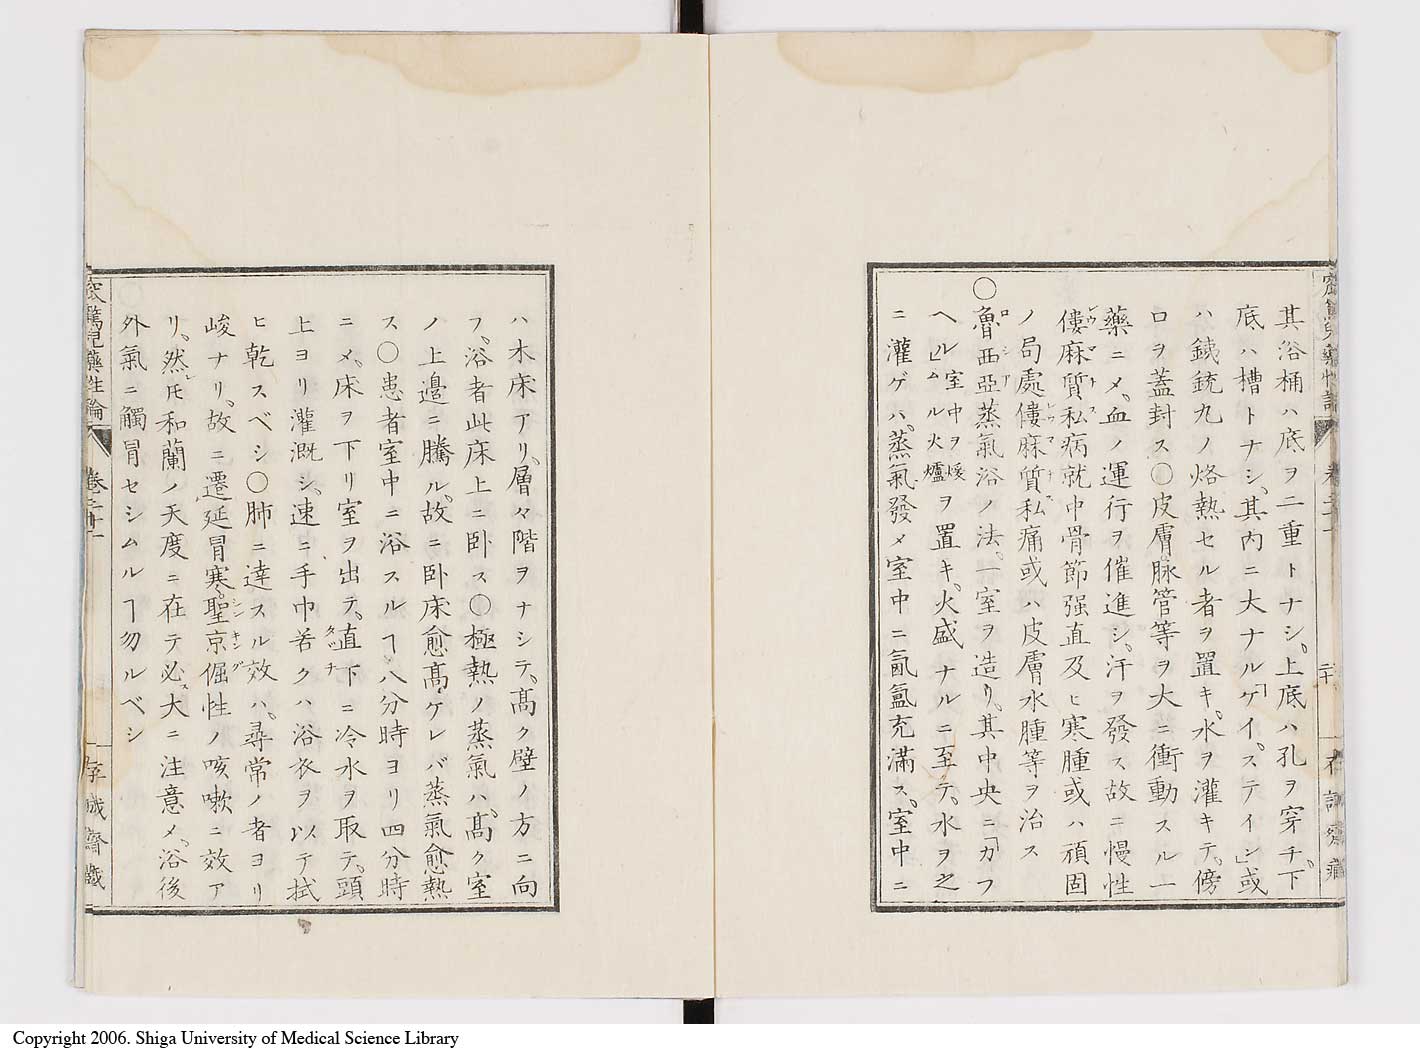 其浴桶ハ底ヲ二重トナシ、上底ハ孔ヲ穿チ、下
底ハ槽トナシ、其内ニ大ナル「ゲイ、ステイン」或
ハ銕銃丸ノ烙熱セル者ヲ置キ、水ヲ灌キテ、傍
ロヲ蓋封ス〇皮膚脉管等ヲ大ニ衝動スル一
藥ニメ、血ノ運行ヲ催進シ、汗ヲ發ス故ニ慢性
僂麻質私病就中骨節强直及ヒ寒腫或ハ頑固
ノ局處僂麻質私痛或ハ皮膚水腫等ヲ治ス
〇魯西亞蒸氣浴ノ法、一室ヲ造リ、其中央ニ「カフ
ヘル」室中ヲ煖ムル火爐ヲ置キ、火盛ナルニ至テ、水ヲ之
ニ灌ゲハ、蒸氣發メ室中ニ氤氳充滿ス、室中ニ
二十
ハ木床アリ、層々階ヲナシテ、髙ク壁ノ方ニ向
フ、浴者此床上ニ卧ス〇極熱ノ蒸氣ハ、髙ク室
ノ上邉ニ騰ル、故ニ卧床愈髙ケレバ蒸氣愈熱
ス〇患者室中ニ浴スルヿ八分時ヨリ四分時
ニメ、床ヲ下リ室ヲ出テ、直下ニ冷水ヲ取テ、頭
上ヨリ灌漑シ、速ニ手巾若クハ浴衣ヲ以テ拭
ヒ乾スベシ〇肺ニ達スル效ハ、尋常ノ者ヨリ
峻ナリ、故ニ遷延冒寒、聖京倔性ノ咳嗽ニ效ア
リ、然𪜈和蘭ノ天度ニ在テ必ス大ニ注意メ、浴後
外氣ニ觸冒セシムルヿ勿ルベシ
窊篤兒藥性論
存誠齋藏
Copyright 2006. Shiga University of Medical Science Library